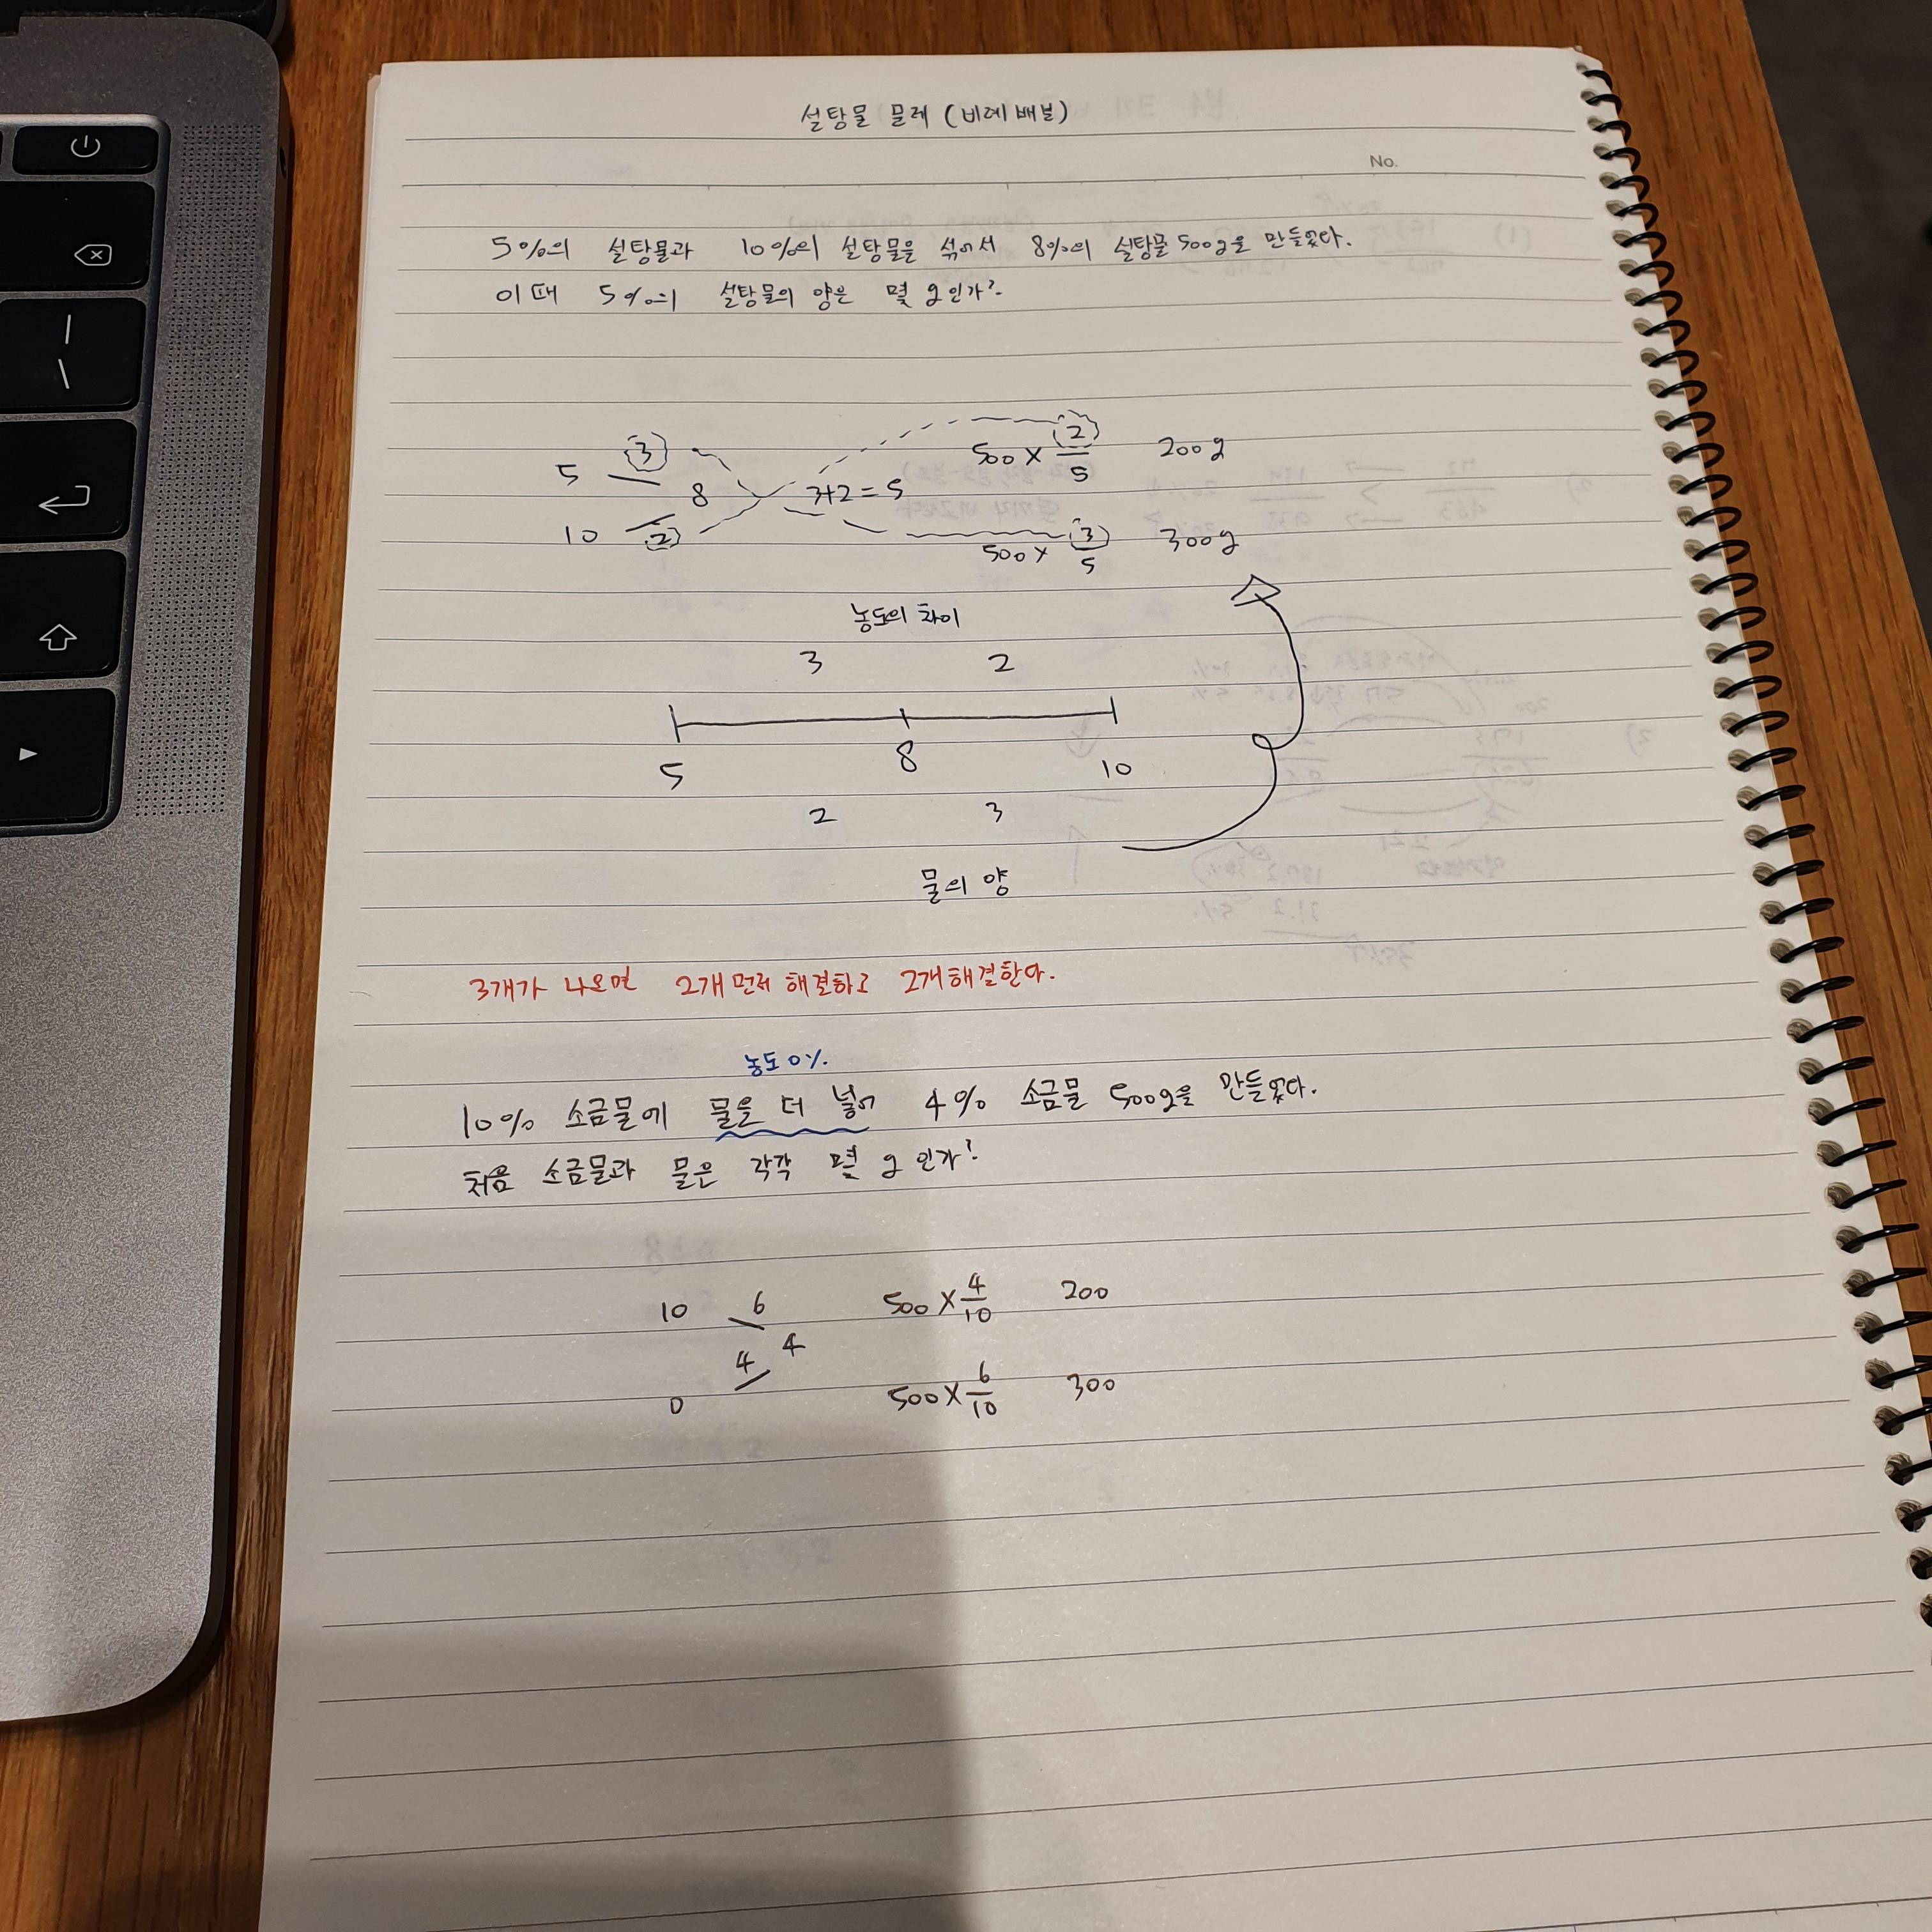 설탕물 문제 (비례배분)
No.
5%의 설탕물과 10%의 설탕물을 섞어서 8%의 설탕물 500g을 만들었다.
이때 5%의 설탕물의 양은 몇 g인가?
3 500 × 2/5 200g
5
8 3+2=5
10 2 500 × 3/5 300g
농도의 차이
3 2
5 8 10
2 3
물의 양
3개가 나오면 2개 먼저 해결하고 2개 해결한다.
농도 0%
10% 소금물에 물을 더 넣어 4% 소금물 500g을 만들었다.
처음 소금물과 물은 각각 몇 g인가?
10 6 500 × 4/10 200
4 4
0 500 × 6/10 300